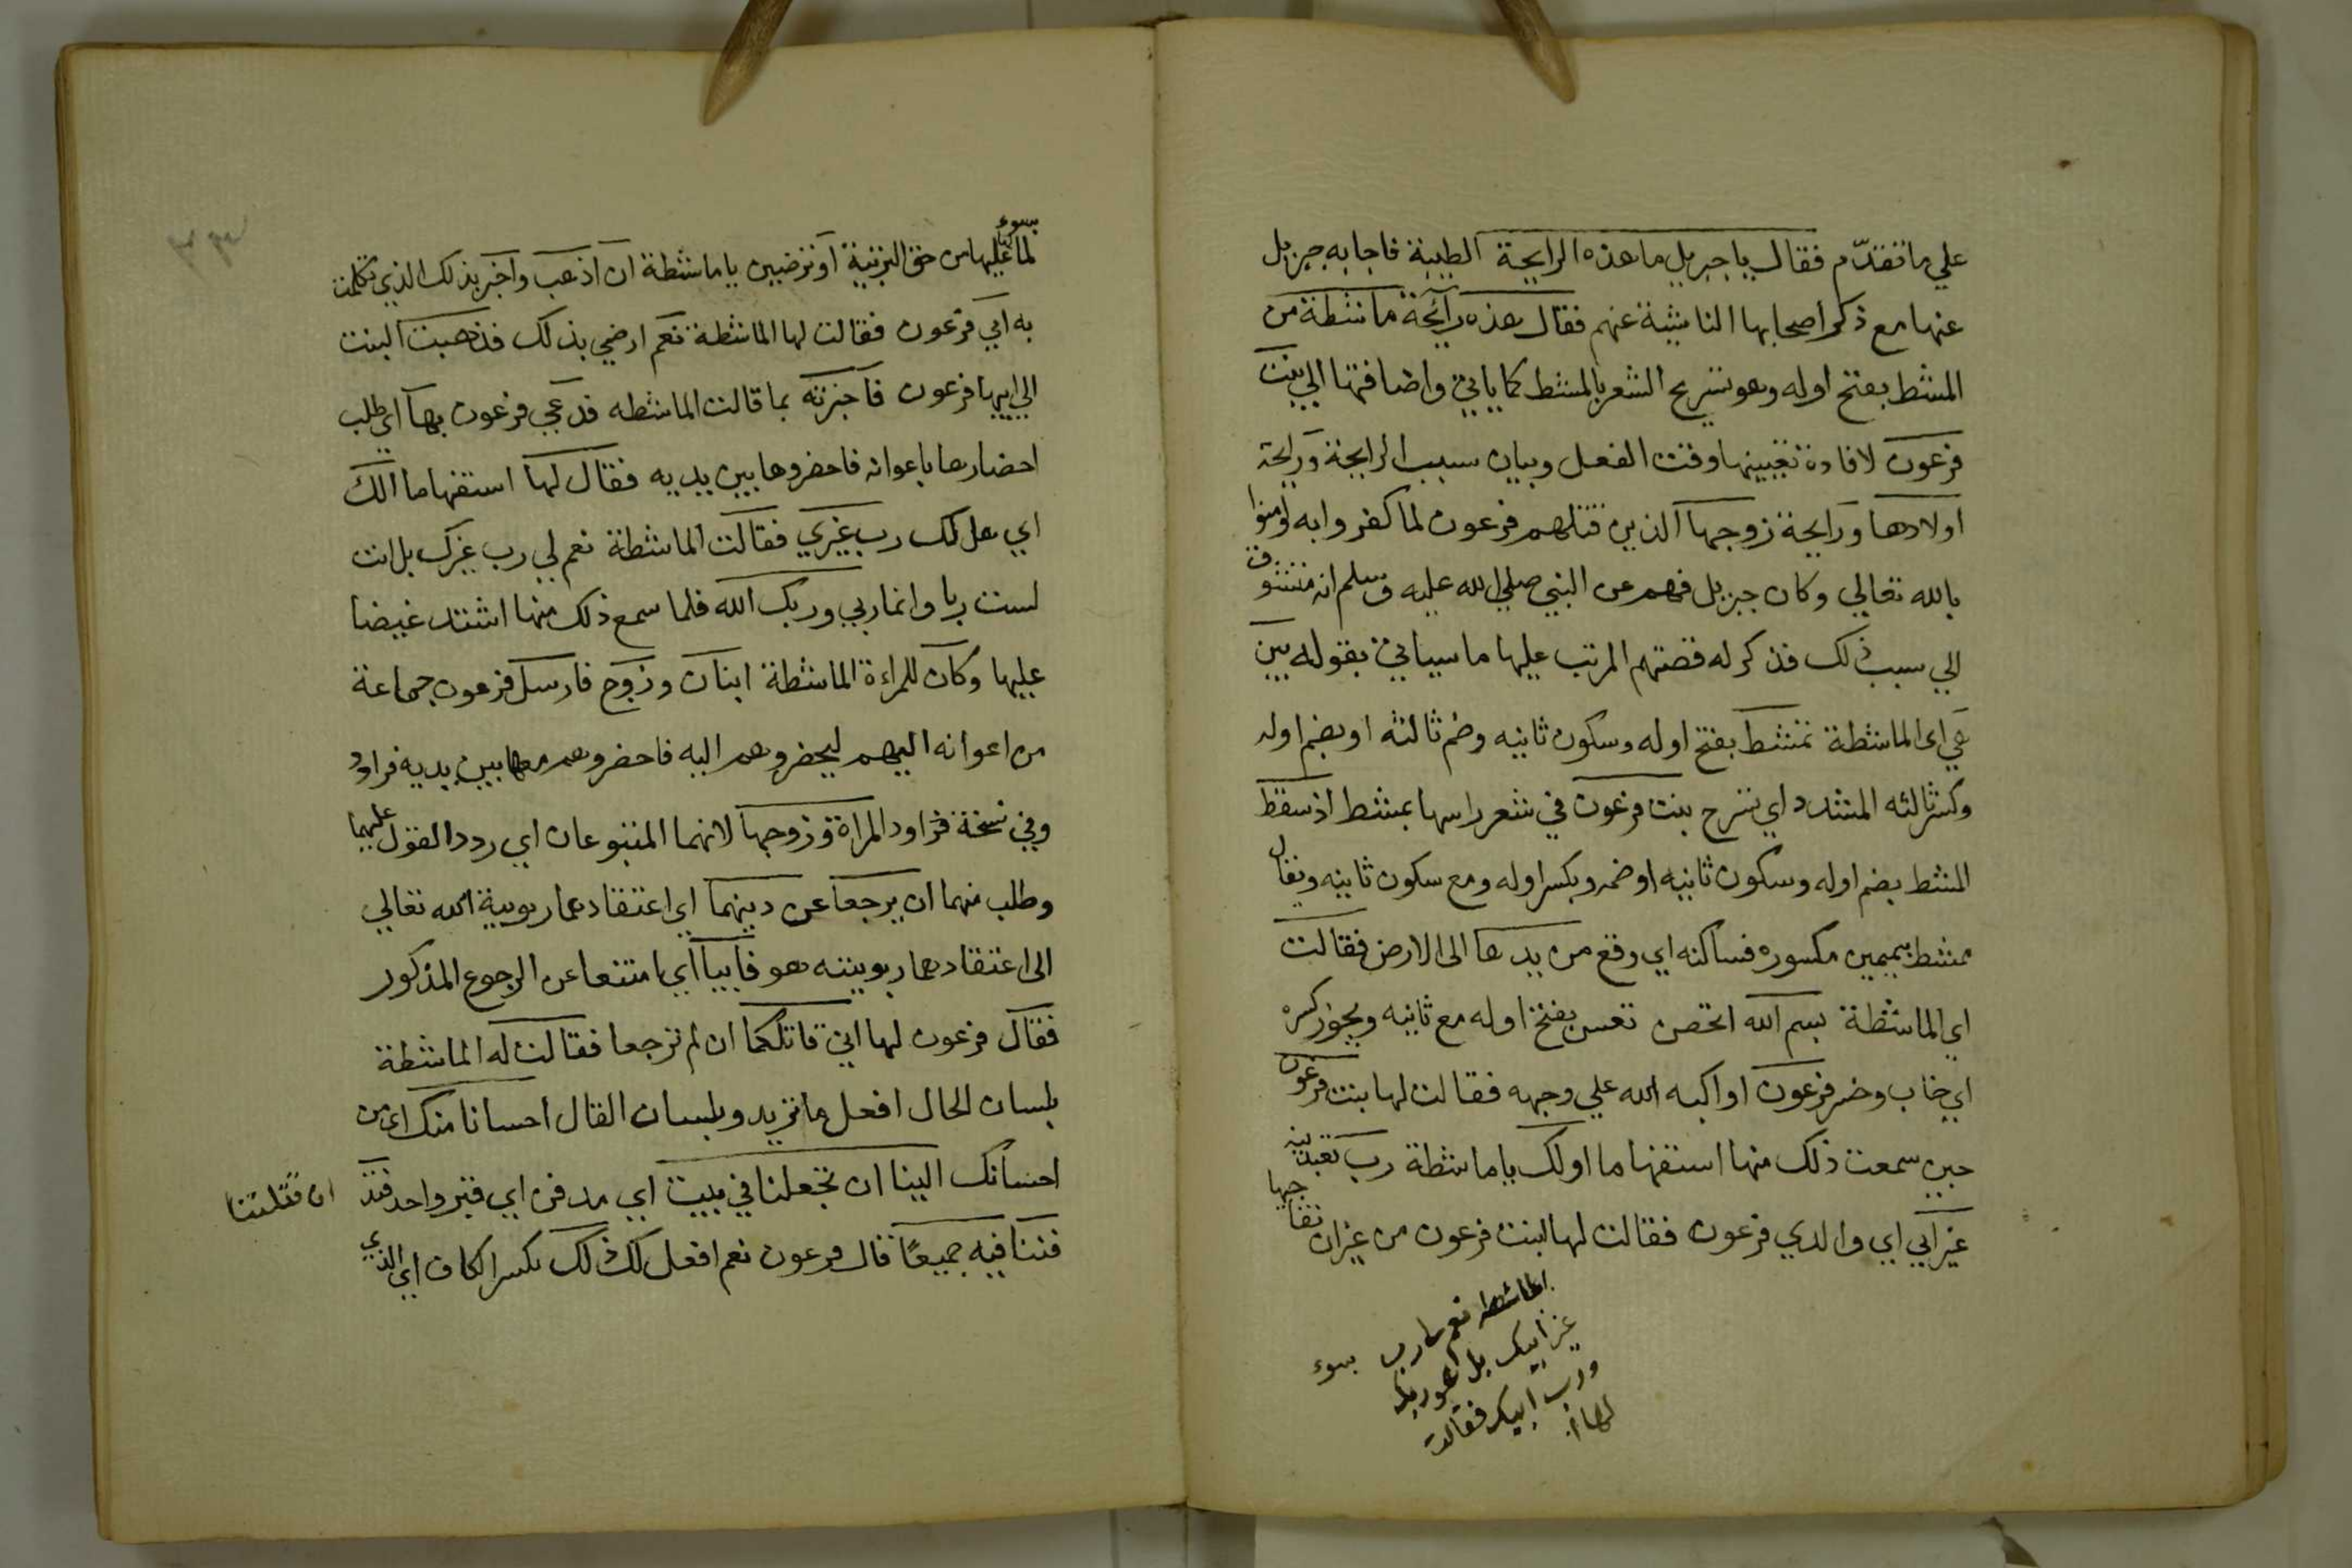 علي ما تقدّم فقال يا جبريل ما هذه الرايحة الطيبة فاجابه جبريل
عنها مع ذكر اصحابها الناشية عنهم فقال هذه رآئحة ماشطة من
المشط بفتح اوله وهو تسريح الشعر بالمشط كما ياتي واضافتها الي بنت
فرعون لافادة تعيينها وقت الفعل وبيان سبب الرايحة ورايحة
اولادها ورايحة زوجها الذين قتلهم فرعون لما كفروا به وامنوا
بالله تعالي وكان جبريل فهم عن النبي صلي الله عليه وسلم انه متشوق
الي سبب ذلك فذكر له قصتهم المرتب عليها ما سياتي بقوله بين
هي اى الماشطة تمشط بفتح اوله وسكون ثانيه وضم ثالثه او بضم اوله
وكسر ثالثه المشدد اي تسرح بنت فرعون في شعر راسها بمشط اذ سقط
المشط بضم اوله وسكون ثانيه او ضمه وبكسر اوله ومع سكون ثانيه ويقال
ممشط بميمين مكسوره فساكنه اي وقع من يدها الى الارض فقالت
اي الماشطة بسم الله اتحصن تعس بفتح اوله مع ثانيه ويجوز كسره
اي خاب وخسر فرعون او اكبه الله علي وجهه فقالت لها بنت فرعون
حين سمعت ذلك منها استفهاما اولك يا ماشطة رب تعبدينه
غير ابي اي والدي فرعون فقالت لها بنت فرعون من غير ان تفاجيها
الماشطه نعم لي رب
غير ابيك بل هو ربك
ورب ابيك فقالت
لها
بسوء
بسوء
لما عليها من حق التربية او ترضين يا ماشطة ان اذهب واخبر بذلك الذي تكلمت
به ابي فرعون فقالت لها الماشطة نعم ارضي بذلك فذهبت البنت
الي ابيها فرعون فاخبرته بما قالت الماشطه فدعي فرعون بها اي طلب
احضارها باعوانه فاحضروها بين يديه فقال لها استفهاما الك
اي هل لك رب غيري فقالت الماشطة نعم لي رب غيرك بل انت
لست ربا وانما ربي وربك الله فلما سمع ذلك منها اشتد غيضا
عليها وكان للمراءة الماشطة ابنان وزوج فارسل فرعون جماعة
من اعوانه اليهم ليحضروهم اليه فاحضروهم معها بين يديه فراود
وفي نسخة فراود المراة وزوجها لانهما المتبوعان اي ردد القول عليهما
وطلب منهما ان يرجعا عن دينهما اي اعتقادهما ربوبية الله تعالي
الى اعتقادهما ربوبيته هو فابيا اي امتنعا عن الرجوع المذكور
فقال فرعون لهما اني قاتلكما ان لم ترجعا فقالت له الماشطة
بلسان الحال افعل ما تريد وبلسان القال احسانا منك اي من
احسانك الينا ان تجعلنا في بيت اي مدفن اي قبر واحد
ان قتلتنا
فيه جميعًا قال فرعون نعم افعل لك ذلك بكسر الكاف اي الذي